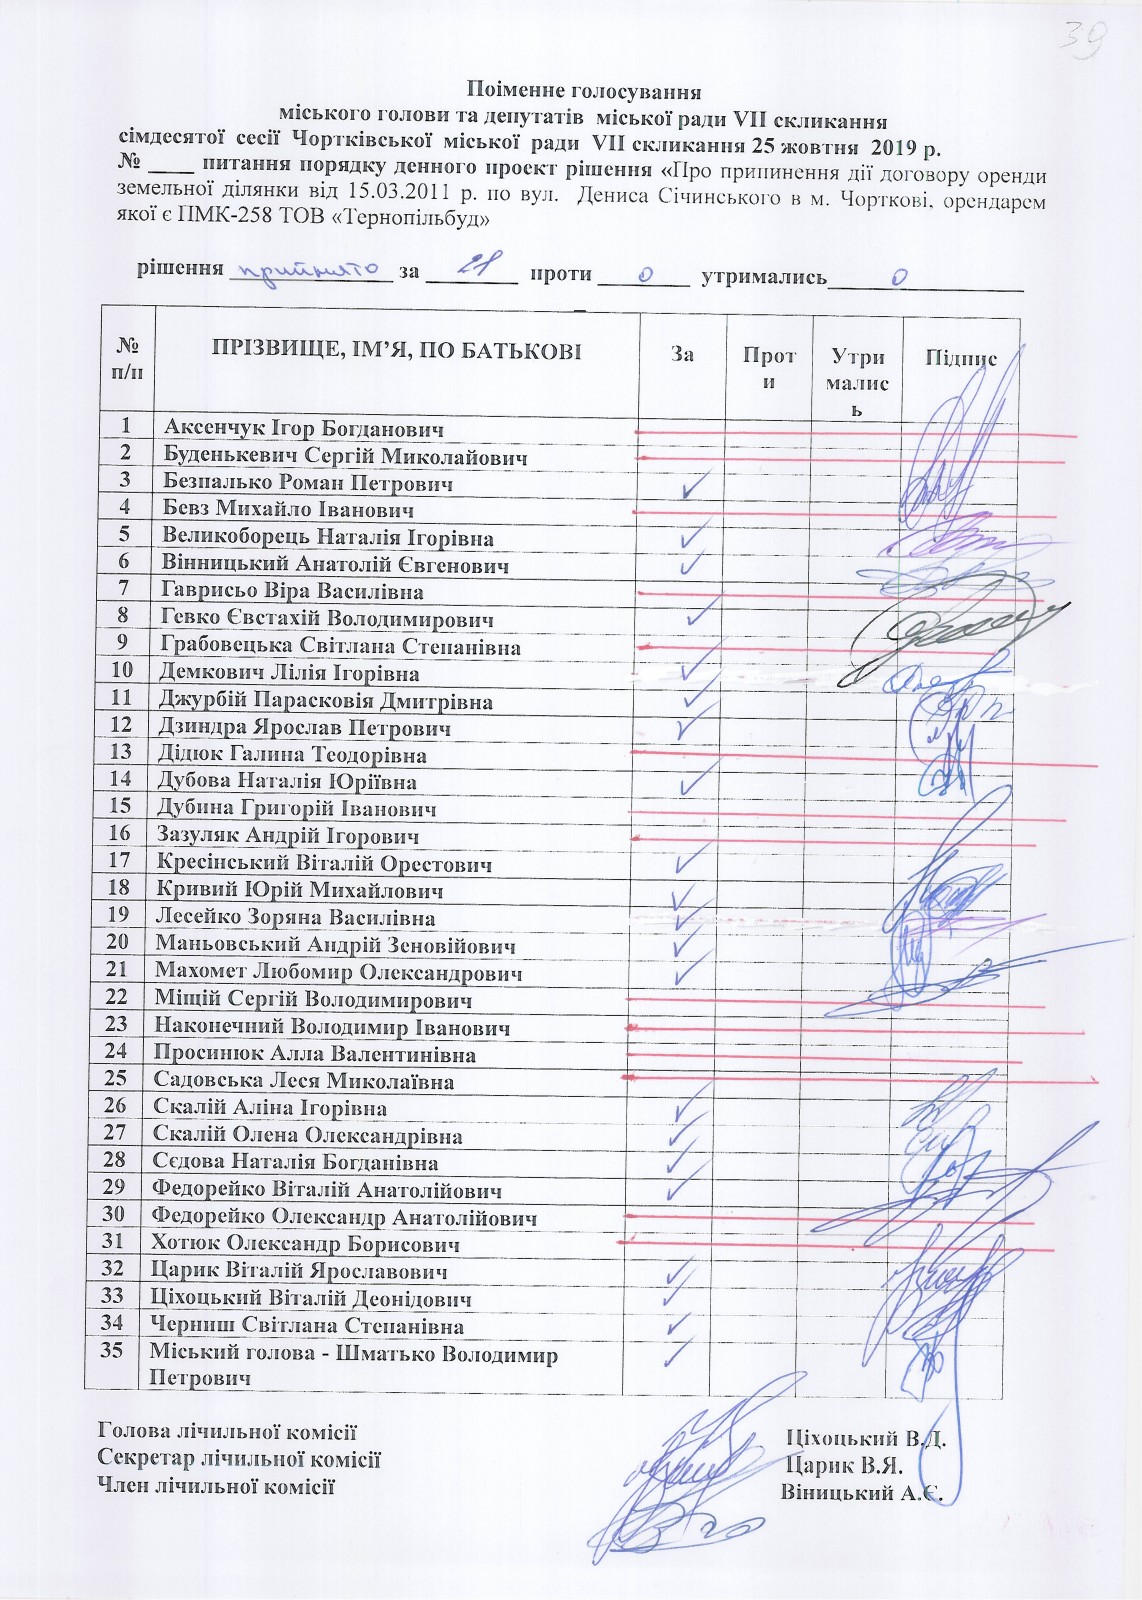 39
Поіменне голосування
міського голови та депутатів міської ради VII скликання
сімдесятої сесії Чортківської міської ради VII скликання 25 жовтня 2019 р.
№ ____ питання порядку денного проект рішення «Про припинення дії договору оренди
земельної ділянки від 15.03.2011 р. по вул. Дениса Січинського в м. Чорткові, орендарем
якої є ПМК-258 ТОВ «Тернопільбуд»
рішення прийнято за 21 проти 0 утримались 0
№ п/п ПРІЗВИЩЕ, ІМ’Я, ПО БАТЬКОВІ За Прот и Утри малис ь Підпис
1 Аксенчук Ігор Богданович
2 Буденькевич Сергій Миколайович
3 Безпалько Роман Петрович ✓
4 Бевз Михайло Іванович
5 Великоборець Наталія Ігорівна ✓
6 Вінницький Анатолій Євгенович ✓
7 Гаврисьо Віра Василівна
8 Гевко Євстахій Володимирович ✓
9 Грабовецька Світлана Степанівна
10 Демкович Лілія Ігорівна ✓
11 Джурбій Парасковія Дмитрівна ✓
12 Дзиндра Ярослав Петрович ✓
13 Дідюк Галина Теодорівна
14 Дубова Наталія Юріївна ✓
15 Дубина Григорій Іванович
16 Зазуляк Андрій Ігорович
17 Кресінський Віталій Орестович ✓
18 Кривий Юрій Михайлович ✓
19 Лесейко Зоряна Василівна ✓
20 Маньовський Андрій Зеновійович ✓
21 Махомет Любомир Олександрович ✓
22 Міщій Сергій Володимирович
23 Наконечний Володимир Іванович
24 Просинюк Алла Валентинівна
25 Садовська Леся Миколаївна
26 Скалій Аліна Ігорівна ✓
27 Скалій Олена Олександрівна ✓
28 Сєдова Наталія Богданівна ✓
29 Федорейко Віталій Анатолійович ✓
30 Федорейко Олександр Анатолійович
31 Хотюк Олександр Борисович
32 Царик Віталій Ярославович ✓
33 Ціхоцький Віталій Деонідович ✓
34 Черниш Світлана Степанівна ✓
35 Міський голова - Шматько Володимир ✓
Петрович
Голова лічильної комісії Ціхоцький В.Д.
Секретар лічильної комісії Царик В.Я.
Член лічильної комісії Віницький А.Є.